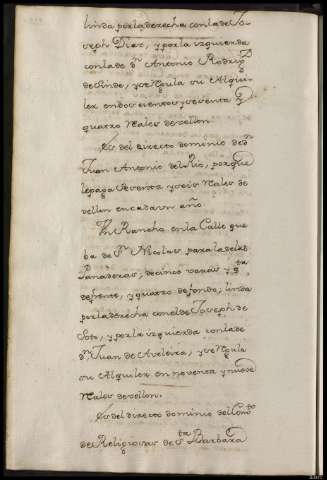 linda por la derecha con la de Jo-
seph Diaz, y por la izquierda
con la de Dn. Antonio Rodrigz.
de Sinde, y se regula su Alqui-
ler en doscientos y setenta y
quatro Rales. de vellon.
Es del directo dominio de Dn.
Juan Antonio del Rio, por que
le paga sesenta y seis Rales. de
vellon en cada un año.
Un Rancho en la Calle que
ba de Sn. Nicolas para la de las
Panaderas, de cinco varas y qta.
de frente, y quatro de fondo; linda
por la derecha con el de Joseph de
Soto, y por la izquierda con la de
Dn. Juan de Axeixea, y se regula
su Alquiler en noventa y nueve
Rales. de vellon.
Es del directo dominio del Conto.
de Religiosas de Sta. Barbara